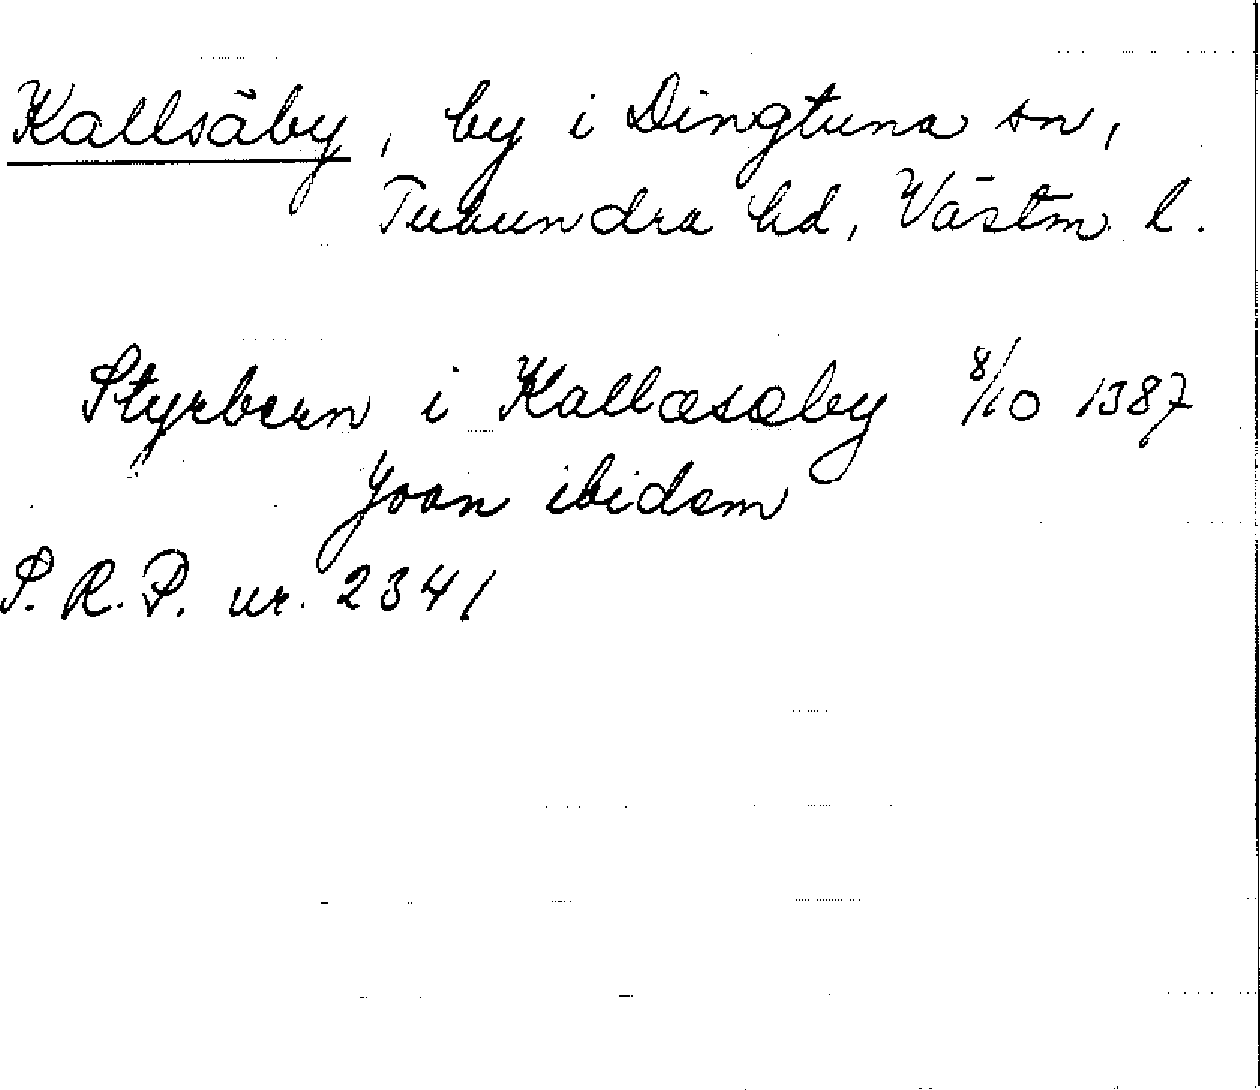 Kallsäby, by i Dingtuna sn,
Tuhundra hd, Västm. l.
Styrbern i Kallæsæby 8/10 1387
Joan ibidem
S. R. P. nr. 2341